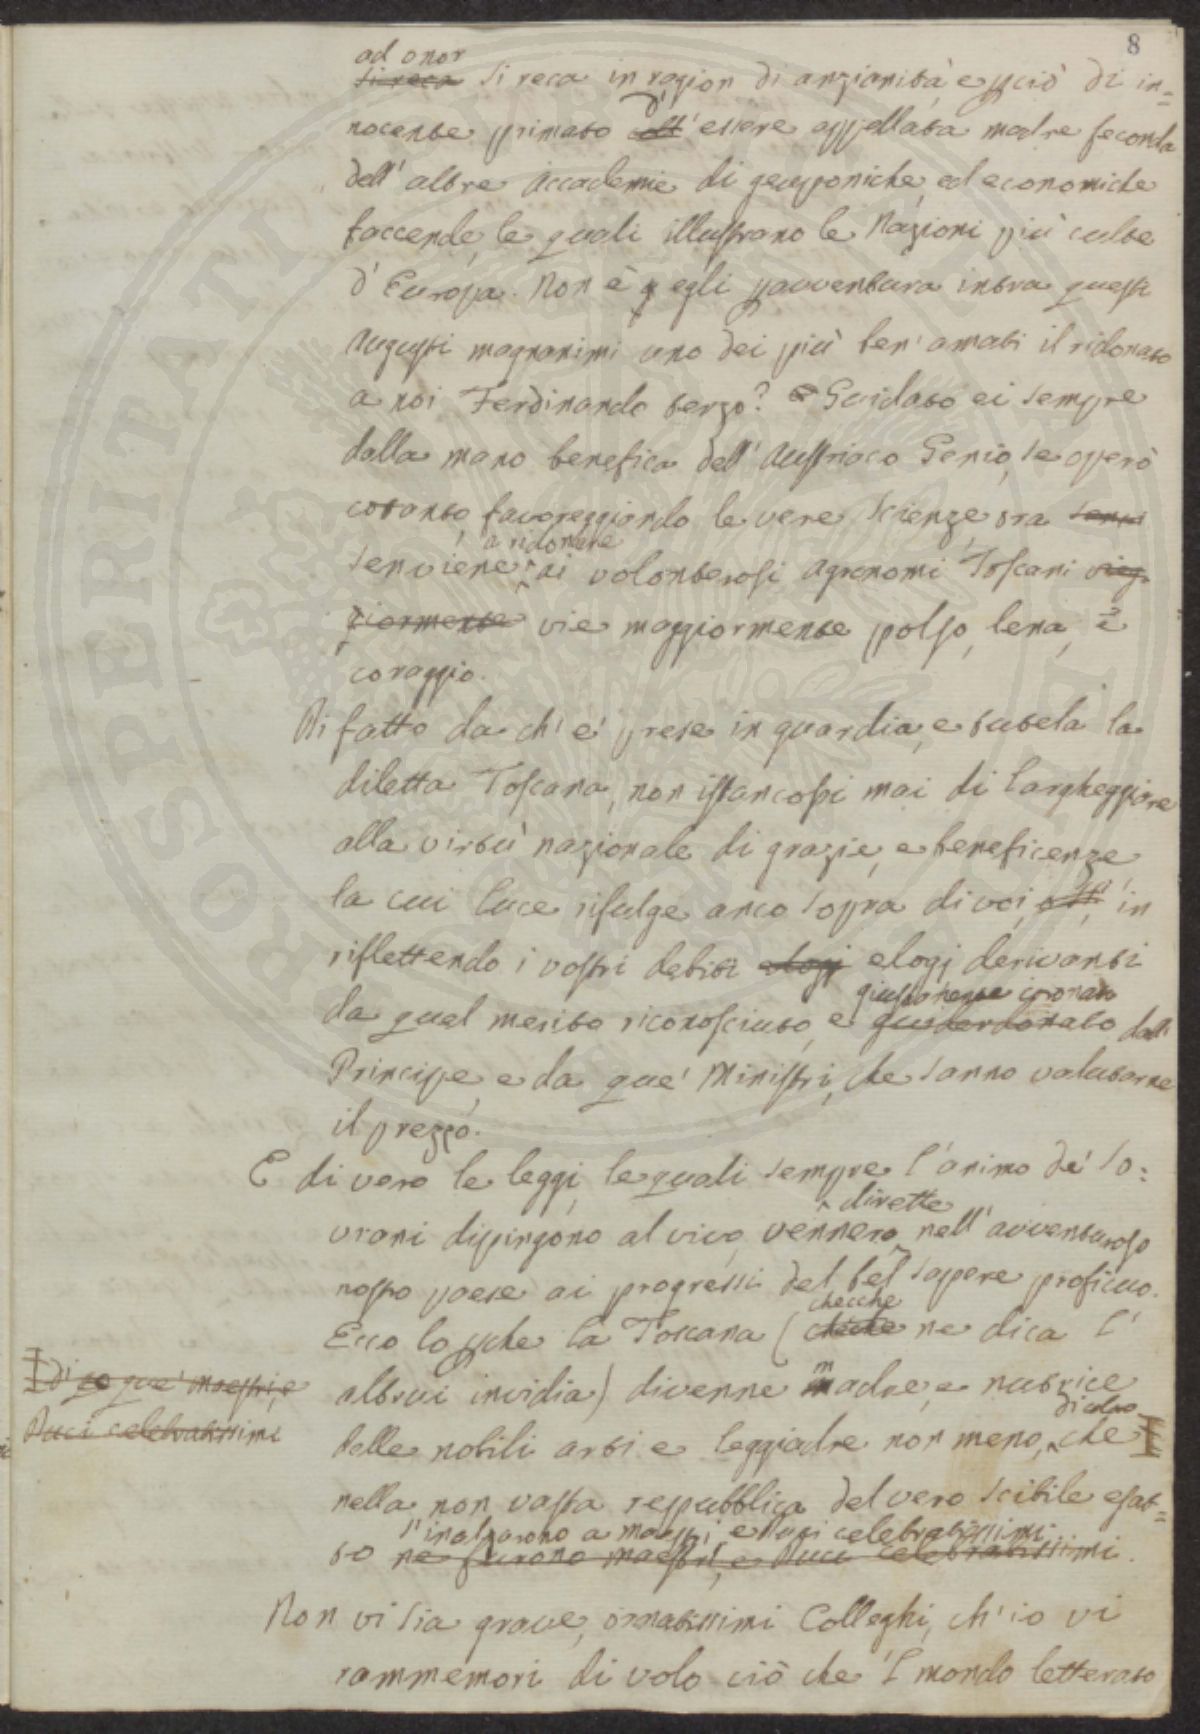 8
ad onor
si reca si reca in ragion di anzianità, e pciò di in=
nocente primato d' coll' essere appellata madre feconda
dell' altre Accademie di geoponiche, ed economiche
faccende, le quali illustrano le Nazioni più culte
d' Europa. Non è egli pavventura intra questi
Augusti magnanimi uno dei più ben' amati il ridonato
a noi Ferdinando terzo? Guidato ei sempre
dalla mano benefica dell' Austriaco Genio, se operò
cotanto favoreggiando le vere scienze, ora
a ridonare
senviene ai volonterosi Agronomi Toscani vieg-
giormente vie maggiormente polso, lena, e
coraggio.
Di fatto da ch' e' prese in guardia, e tutela la
diletta Toscana, non istancossi mai di largheggiare
alla virtù nazionale di grazie, e beneficenze
la cui luce rifulge anco sopra di voi, in
riflettendo i vostri debiti elogj elogj derivanti
giustamente coronato
da quel merito riconosciuto, e guiderdonato dal
Principe, e da que' Ministri, che sanno valutarne
il prezzo.
E di vero le leggi, le quali sempre l' animo de' So=
dirette
vrani dipingono al vivo, vennero nell' avventuroso
nostro paese ai progressi del bel sapere proficuo.
checche
Ecco lo pche la Toscana ( ne dica l'
altrui invidia) divenne madre, e nutrice
di colà
delle nobili arti e leggiadre non meno, che
nella non vasta respubblica del vero scibile esat=
s' inalzarono a maestri e Duci celebratissimi.
to ne furono maestri, e Duci celebratissimi.
Di que' Maestri, e
Duci celebratissimi
Non vi sia grave, ornatissimi Colleghi, ch' io vi
rammemori di volo ciò che 'l mondo letterato